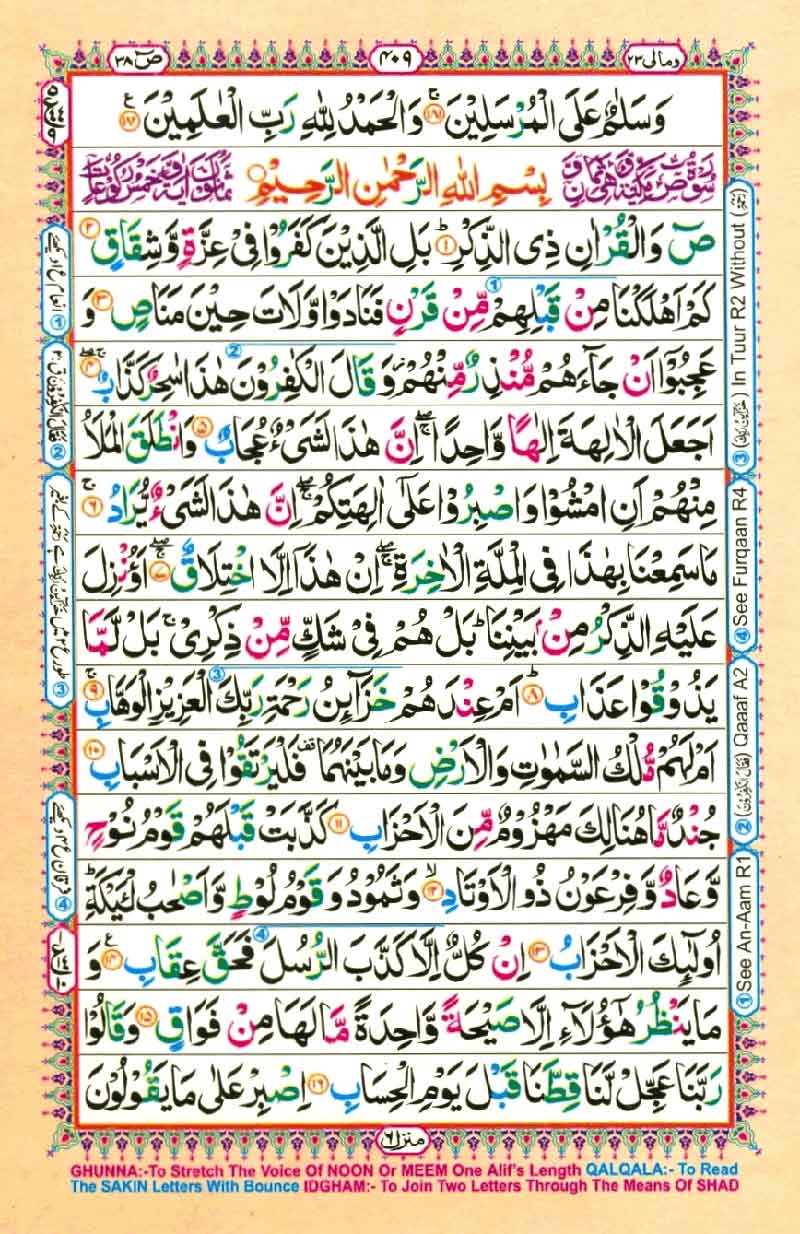 ومالی ٢٣
٤٠٩
صٓ ٣٨
وَسَلٰمٌ عَلَى الْمُرْسَلِيْنَ ۚ﴿١٨١﴾ وَالْحَمْدُ لِلّٰهِ رَبِّ الْعٰلَمِيْنَ ﴿١٨٢﴾
بِسْمِ اللّٰهِ الرَّحْمٰنِ الرَّحِيْمِ
صٓ وَالْقُرْاٰنِ ذِى الذِّكْرِ ؕ﴿١﴾ بَلِ الَّذِيْنَ كَفَرُوْا فِىْ عِزَّةٍ وَّشِقَاقٍ ﴿٢﴾
كَمْ اَهْلَكْنَا مِنْ قَبْلِهِمْ مِّنْ قَرْنٍ فَنَادَوْا وَّلَاتَ حِيْنَ مَنَاصٍ ﴿٣﴾ وَ
عَجِبُوْۤا اَنْ جَآءَهُمْ مُّنْذِرٌ مِّنْهُمْ وَقَالَ الْكٰفِرُوْنَ هٰذَا سٰحِرٌ كَذَّابٌ ﴿٤﴾
اَجَعَلَ الْاٰلِهَةَ اِلٰهًا وَّاحِدًا ۖۚ اِنَّ هٰذَا لَشَىْءٌ عُجَابٌ ﴿٥﴾ وَانْطَلَقَ الْمَلَاُ
مِنْهُمْ اَنِ امْشُوْا وَاصْبِرُوْا عَلٰٓى اٰلِهَتِكُمْ ۖۚ اِنَّ هٰذَا لَشَىْءٌ يُّرَادُ ۚ﴿٦﴾
مَا سَمِعْنَا بِهٰذَا فِى الْمِلَّةِ الْاٰخِرَةِ ۖۚ اِنْ هٰذَاۤ اِلَّا اخْتِلَاقٌ ۖۚ﴿٧﴾ ءَاُنْزِلَ
عَلَيْهِ الذِّكْرُ مِنْۢ بَيْنِنَا ؕ بَلْ هُمْ فِىْ شَكٍّ مِّنْ ذِكْرِىْ ۚ بَلْ لَّمَّا
يَذُوْقُوْا عَذَابِ ؕ﴿٨﴾ اَمْ عِنْدَهُمْ خَزَآئِنُ رَحْمَةِ رَبِّكَ الْعَزِيْزِ الْوَهَّابِ ۚ﴿٩﴾
اَمْ لَهُمْ مُّلْكُ السَّمٰوٰتِ وَالْاَرْضِ وَمَا بَيْنَهُمَا قف فَلْيَرْتَقُوْا فِى الْاَسْبَابِ ﴿١٠﴾
جُنْدٌ مَّا هُنَالِكَ مَهْزُوْمٌ مِّنَ الْاَحْزَابِ ﴿١١﴾ كَذَّبَتْ قَبْلَهُمْ قَوْمُ نُوْحٍ
وَّعَادٌ وَّفِرْعَوْنُ ذُو الْاَوْتَادِ ۙ﴿١٢﴾ وَثَمُوْدُ وَقَوْمُ لُوْطٍ وَّاَصْحٰبُ لْئَيْكَةِ ؕ
اُولٰٓئِكَ الْاَحْزَابُ ﴿١٣﴾ اِنْ كُلٌّ اِلَّا كَذَّبَ الرُّسُلَ فَحَقَّ عِقَابِ ﴿١٤﴾ وَ
مَا يَنْظُرُ هٰٓؤُلَآءِ اِلَّا صَيْحَةً وَّاحِدَةً مَّا لَهَا مِنْ فَوَاقٍ ﴿١٥﴾ وَقَالُوْا
رَبَّنَا عَجِّلْ لَّنَا قِطَّنَا قَبْلَ يَوْمِ الْحِسَابِ ﴿١٦﴾ اِصْبِرْ عَلٰى مَا يَقُوْلُوْنَ
منزل ٦
① See An-Aam R1 ② Qaaaf A2
④ See Furqaan R4 ③ In Tuur R2 Without
GHUNNA:-To Stretch The Voice Of NOON Or MEEM One Alif's Length QALQALA:- To Read
The SAKIN Letters With Bounce IDGHAM:- To Join Two Letters Through The Means Of SHAD